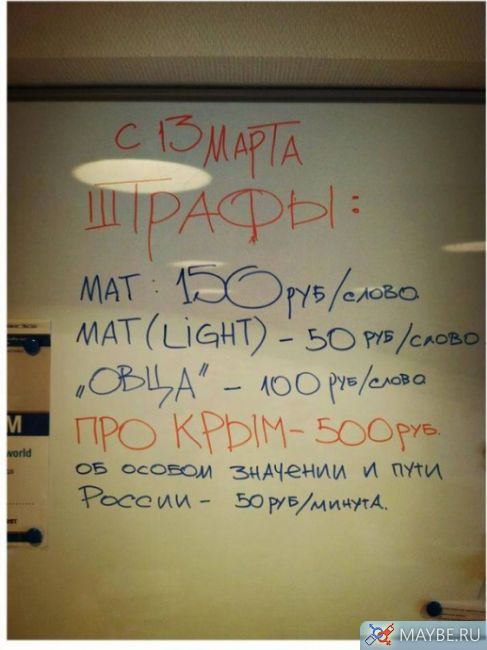 С 13 МАРТА
ШТРАФЫ:
МАТ : 150 РУБ/СЛОВО
МАТ (LIGHT) - 50 РУБ/СЛОВО
„ОВЦА" - 100 РУБ/СЛОВО
ПРО КРЫМ - 500 РУБ.
ОБ ОСОБОМ ЗНАЧЕНИИ И ПУТИ
РОССИИ - 50 РУБ/МИНУТА.
M
world
MAYBE.RU